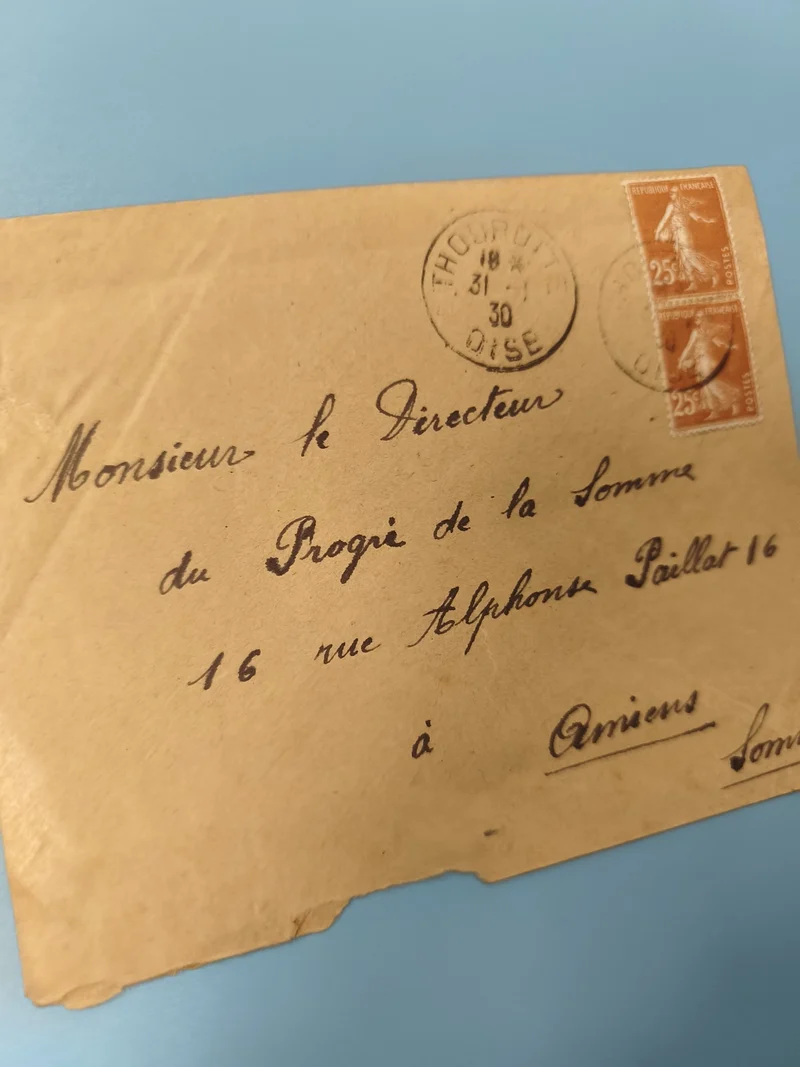 THOUROTTE
18 *
31 - 1
30
OISE
REPUBLIQUE FRANÇAISE
25c
POSTES
REPUBLIQUE FRANÇAISE
25c
POSTES
Monsieur le Directeur
du Progrè de la Somme
16 rue Alphonse Paillat 16
à Amiens
Som